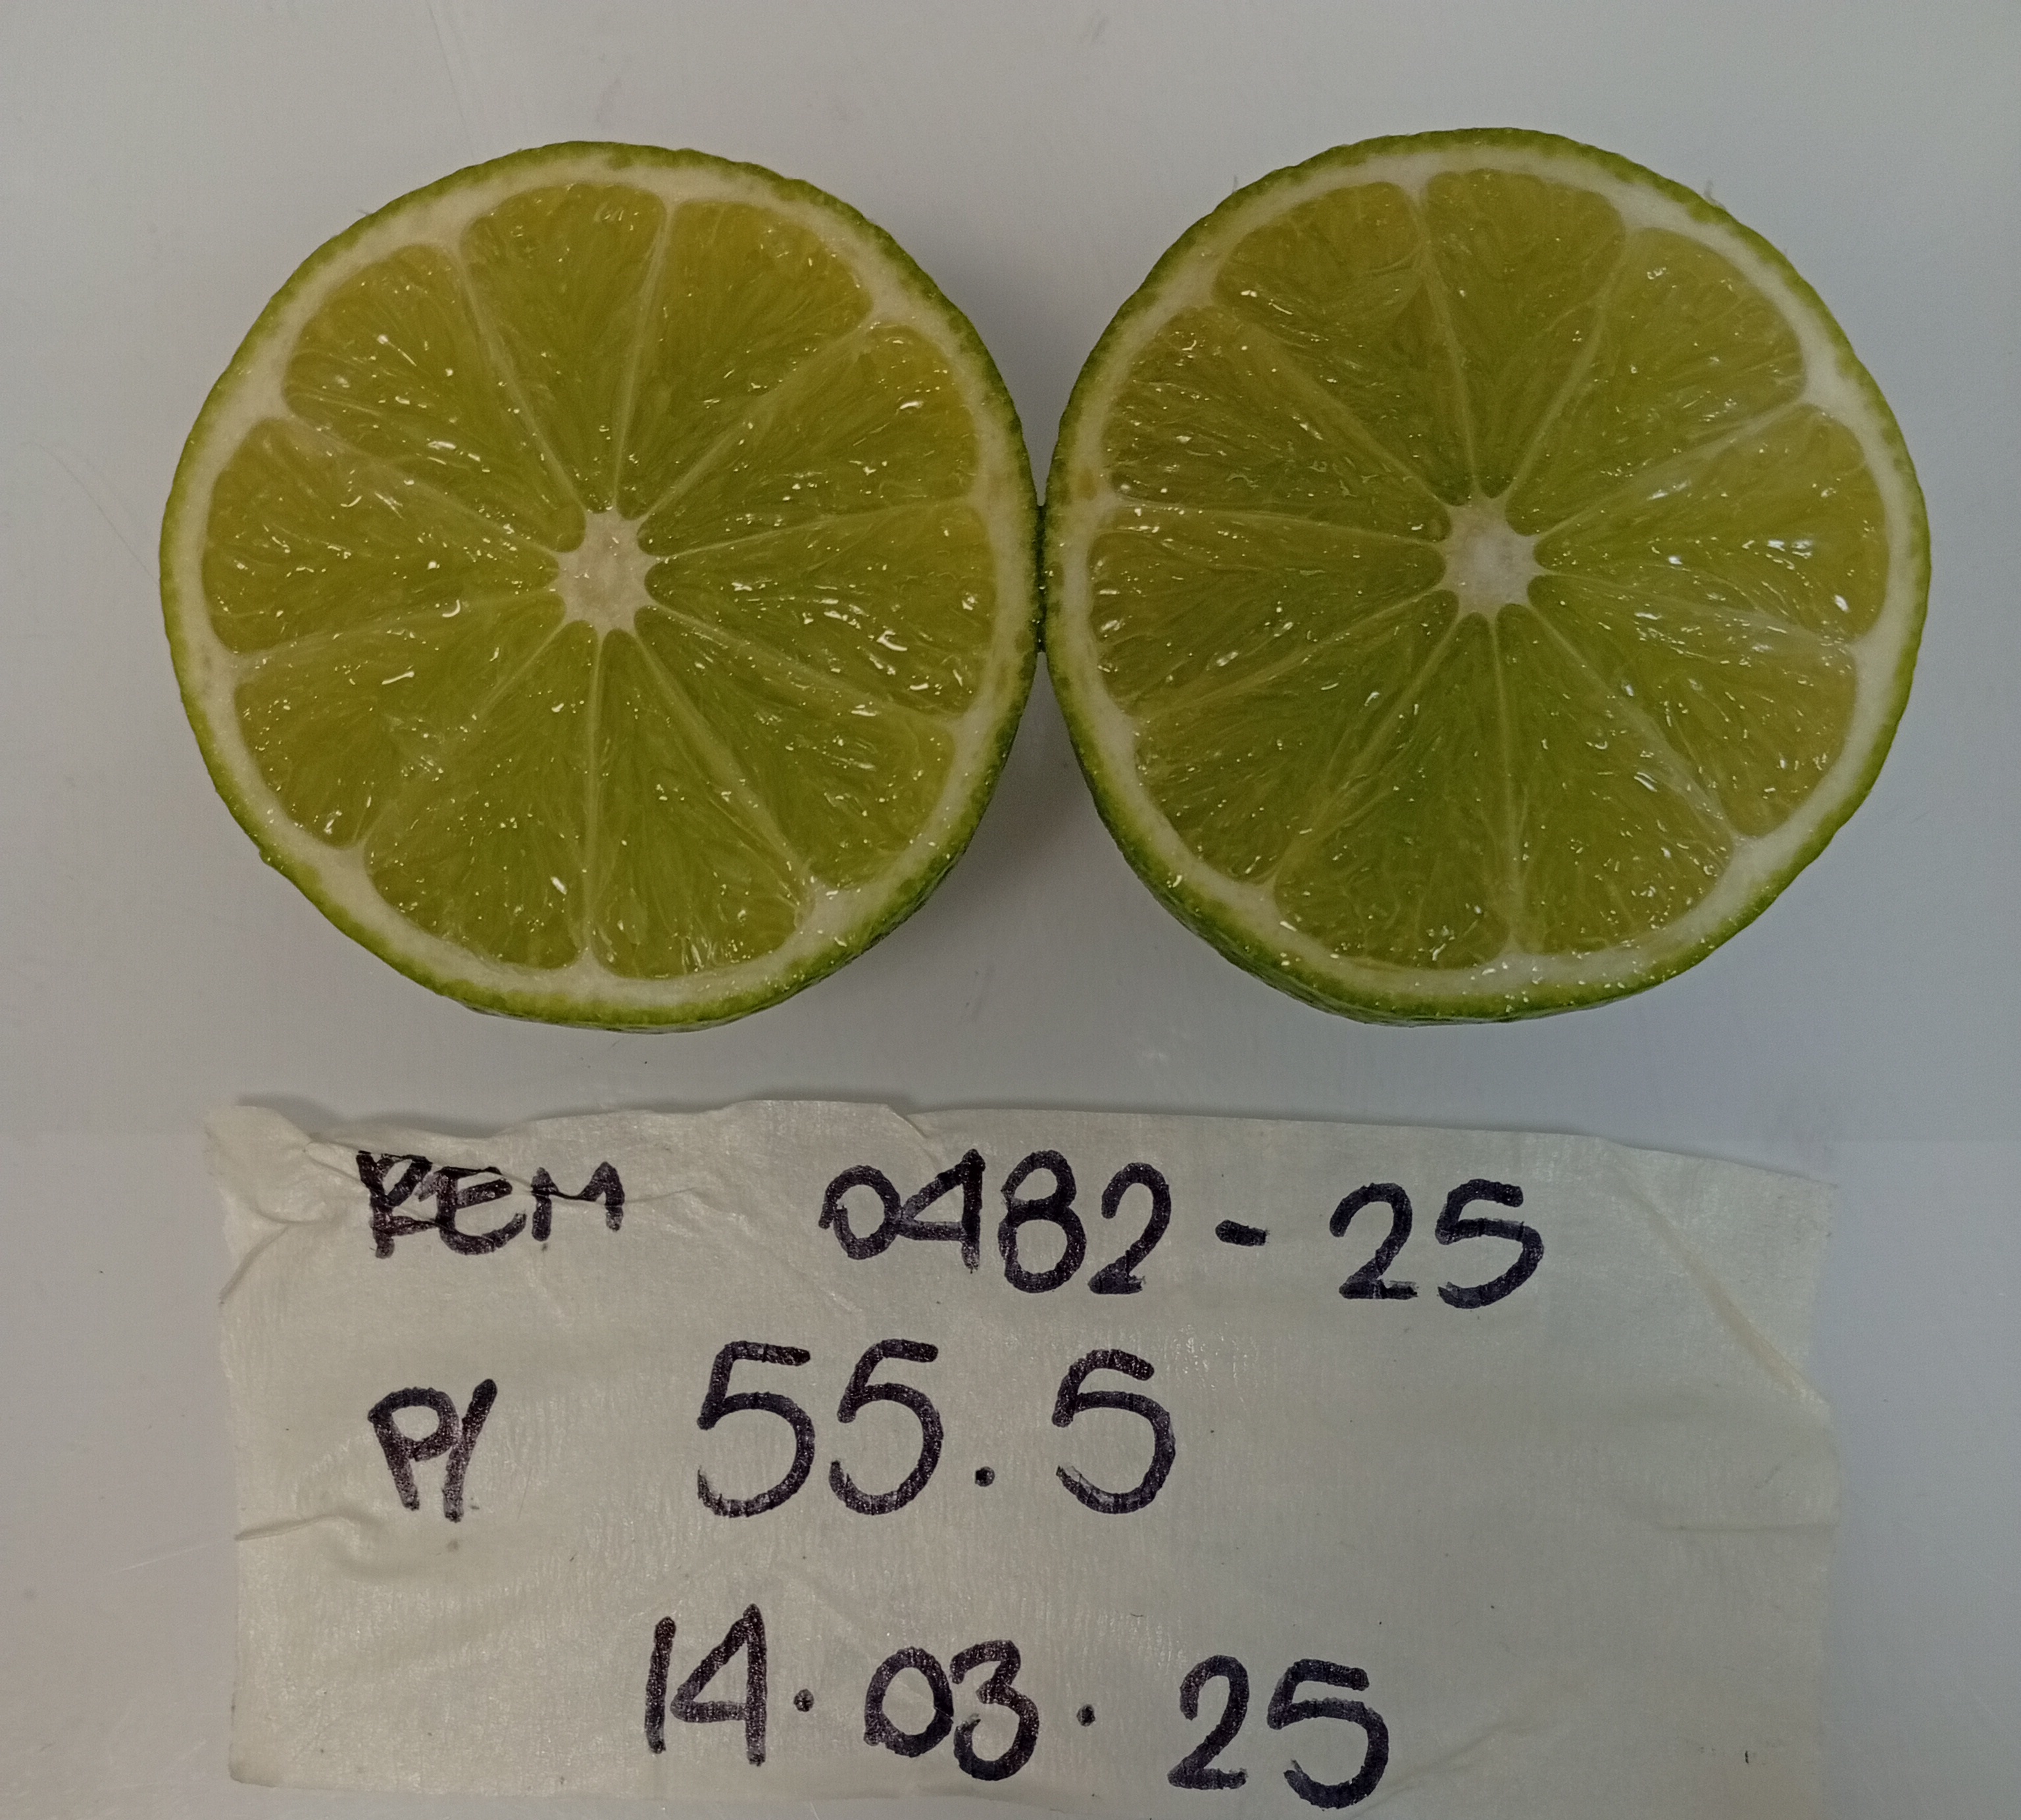 REM 0482-25
P/ 55.5
14.03.25